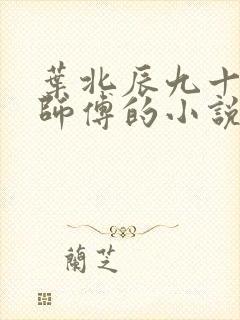 葉北辰九十
師傅的小說
蘭芝